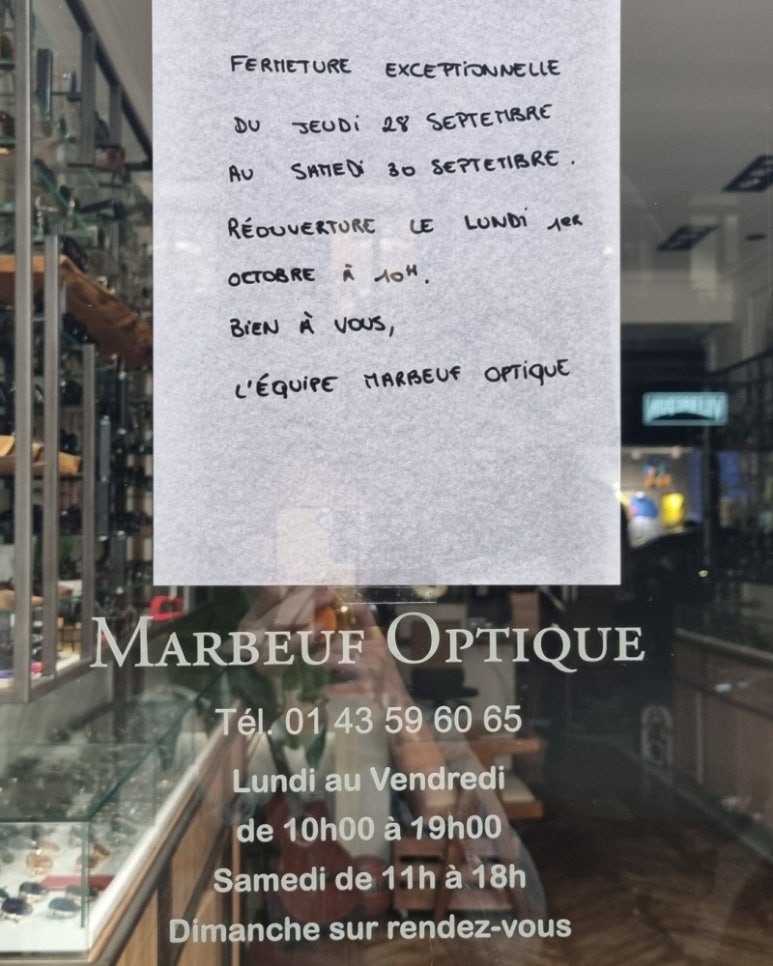 FERMETURE EXCEPTIONNELLE
DU JEUDi 28 SEPTEMBRE
AU SAMEDi 30 SEPTEMBRE.
RÉOUVERTURE LE LUNDi 1ER
OCTOBRE À 10H.
BiEN À VOUS,
L'ÉQUiPE MARBEUF OPTiQUE
MARBEUF OPTIQUE
Tél. 01 43 59 60 65
Lundi au Vendredi
de 10h00 à 19h00
Samedi de 11h à 18h
Dimanche sur rendez-vous